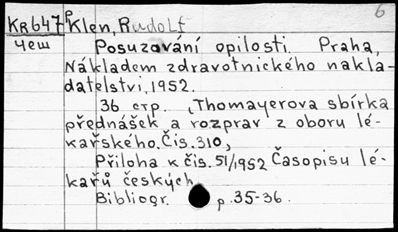 6
KR647 Klen, Rudolf
чеш Posuzování opilosti. Praha,
Nákladem zdravotnického nakla-
datelství, 1952.
36 стр. (Thomayerova sbírka
přednášek a rozprav z oboru lé-
kařského. Čís. 310,
Příloha k čís. 51/1952 Časopisu lé-
kařů českých
Bibliogr. p. 35-36.